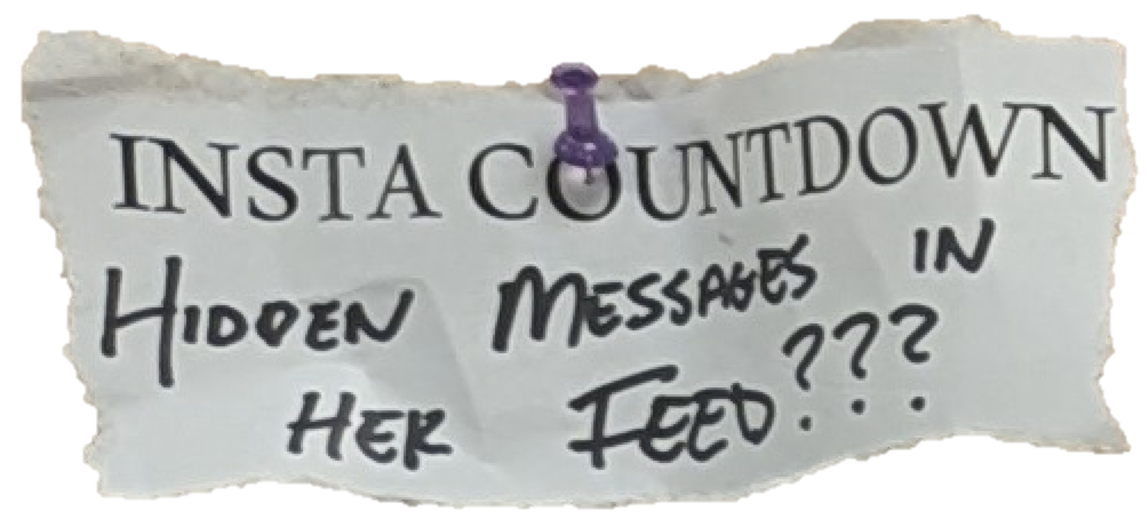 INSTA COUNTDOWN
HIDDEN MESSAGES IN
HER FEED???